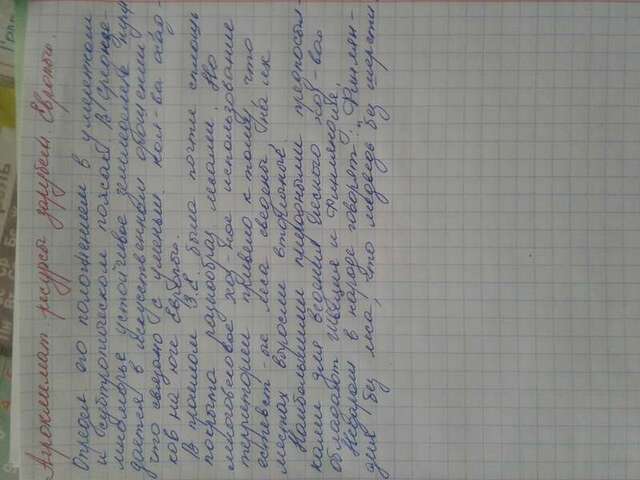 Агроклимат. ресурсы зарубеж. Европы.
Определ. его положением в умеренном
и субтропическом поясах. В Средизе-
миоморье устойчивое земледелие нуж
дается в искусственном орошении
что связано с уменьш. кол-ва осад-
ков на юге Европы.
В прошлом З.Е. была почти сплошь
покрыта разнообраз. лесами. Но
многовековое хоз-ное использование
территории привело к тому, что
естевст-ые леса сведены, на их
местах выросли вторичные.
Наибольшими природными предпосыл-
ками для ведения лесного хоз-ва
обладают Швеция и Финляндия.
Недаром в народе говорят: „Финлян-
дия без леса, что медведь без шерсти